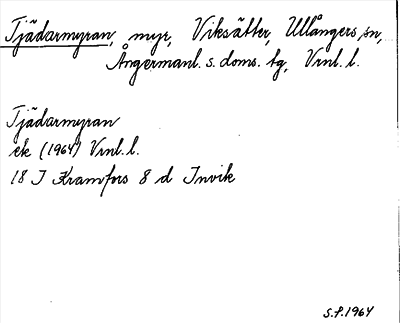 Tjädarmyran, myr, Viksätter, Ullångers sn,
Ångermanl. s. doms. tg, Vrnl. l.
Tjädarmyran
ek (1964) Vrnl. l.
18 I Kramfors 8 d Invik
S.P. 1964